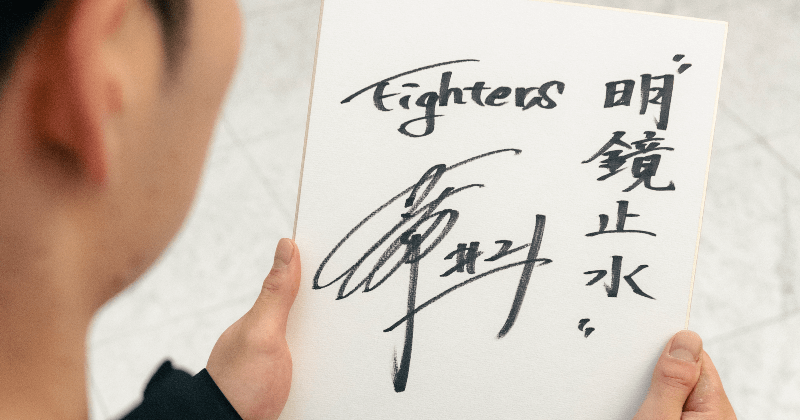 Fighters
#21
"明鏡止水"